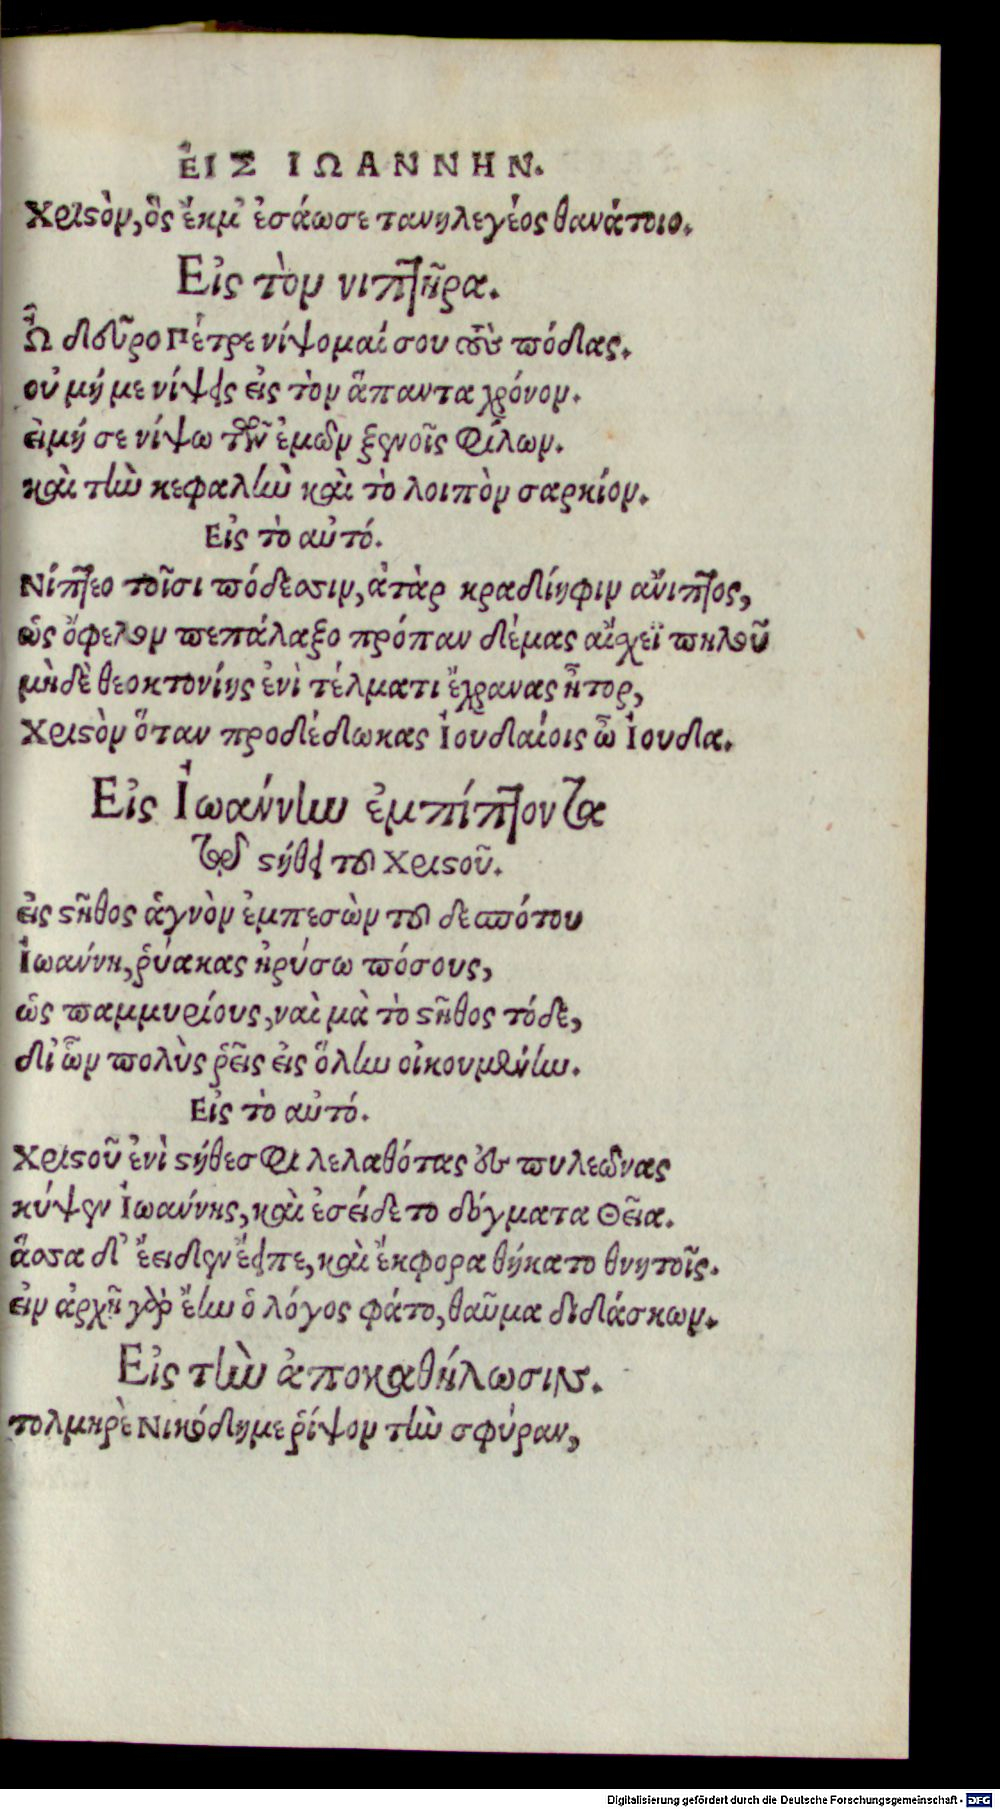 ΕἸΣ ἸΩΑΝΝΗΝ.
Χριστὸν, ὃς ἔκμ' ἐσάωσε τανηλεγέος θανάτοιο.
Εἰς τὸν νιπτῆρα.
Ὦ δεῦρο Πέτρε νίψομαί σου τοὺς πόδας.
οὐ μή με νίψῃς εἰς τὸν ἅπαντα χρόνον.
εἰμή σε νίψω τῶν ἐμῶν ξενοῖς φίλων.
καὶ τὴν κεφαλὴν καὶ τὸ λοιπὸν σαρκίον.
Εἰς τὸ αὐτό.
Νίπτεο τοῖσι πόδεσσιν, ἀτὰρ κραδίηφιν ἄνιπτος,
ὡς ὄφελον πεπάλαξο πρόπαν δέμας αἴσχεϊ πηλοῦ
μὴδὲ θεοκτονίης ἐνὶ τέλματι ἔχρανας ἦτορ,
Χριστὸν ὅταν προδέδωκας Ἰουδαίοις ὦ Ἰούδα.
Εἰς Ἰωάννην ἐμπίπτοντα
τῷ στήθει τοῦ Χριστοῦ.
εἰς στῆθος ἁγνὸν ἐμπεσὼν τοῦ δεσπότου
Ἰωάννη, ῥύακας ἠρύσω πόσους,
ὡς παμμυρίους, ναὶ μὰ τὸ στῆθος τόδε,
δι' ὧν πολὺς ῥεῖς εἰς ὅλην οἰκουμένην.
Εἰς τὸ αὐτό.
Χριστοῦ ἐνὶ στήθεσφι λελαθότας οὓς πυλεῶνας
κύψεν Ἰωάννης, καὶ ἐσείδετο δόγματα Θεῖα.
ἅσσα δ' ἔειδεν ἔειπε, καὶ ἔκφορα θήκατο θνητοῖς.
εἰν ἀρχῇ γὰρ ἔην ὁ λόγος φάτο, θαῦμα διδάσκων.
Εἰς τὴν ἀποκαθήλωσιν.
τολμηρὲ Νικόδημε ῥίψον τὴν σφύραν,
Digitalisierung gefördert durch die Deutsche Forschungsgemeinschaft - DFG